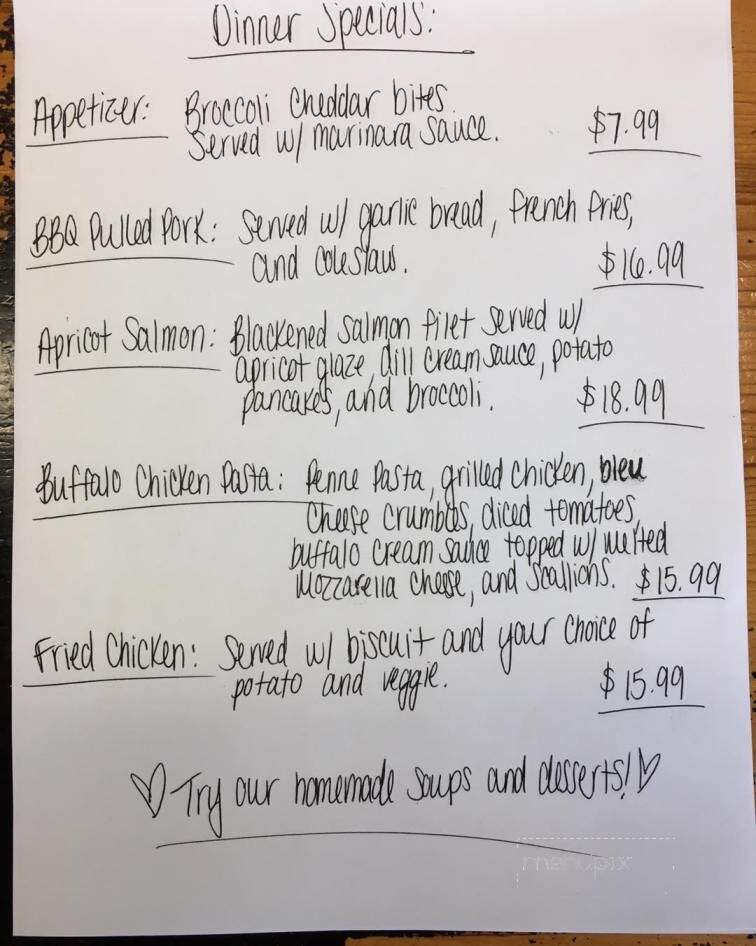 Dinner Specials:
Appetizer: Broccoli Cheddar bites.
Served w/ marinara sauce. $7.99
BBQ Pulled Pork: Served w/ garlic bread, french fries,
and coleslaw. $16.99
Apricot Salmon: Blackened salmon filet served w/
apricot glaze, dill cream sauce, potato
pancakes, and broccoli. $18.99
Buffalo Chicken Pasta: Penne Pasta, grilled chicken, bleu
cheese crumbles, diced tomatoes,
buffalo cream sauce topped w/ melted
mozzarella cheese, and scallions. $15.99
Fried Chicken: Served w/ biscuit and your choice of
potato and veggie. $15.99
♡ Try our homemade soups and desserts! ♡
menupix